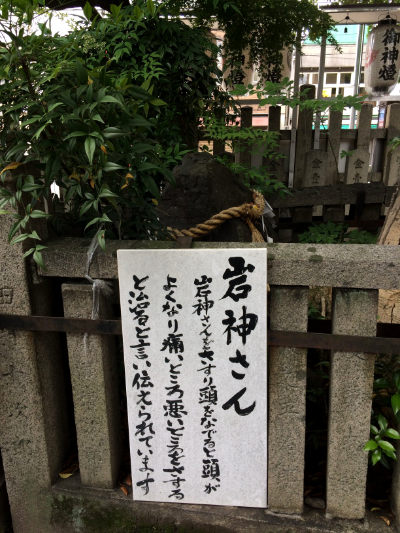 岩神さん
岩神さんをさすり頭をなでると頭が
よくなり痛いところ悪いところをさする
と治ると言い伝えられています
御神燈